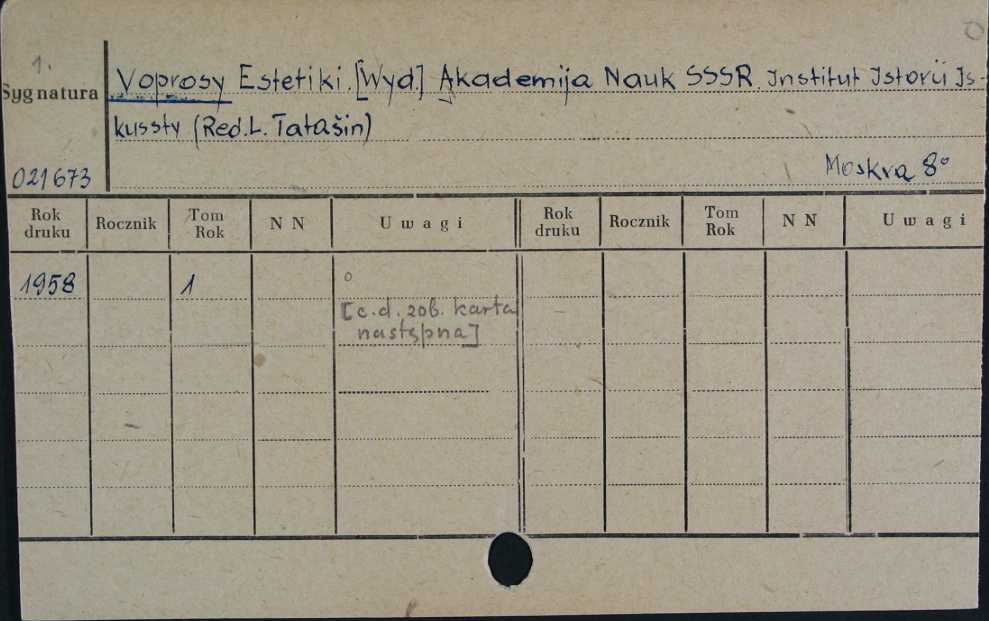 1.
Sygnatura
Voprosy Estetiki. [Wyd.] Akademija Nauk SSSR. Institut Istorii Is-
kussty (Red. L. Tatašin)
021673
Moskva 8°
Rok druku Rocznik Tom Rok N N Uwagi Rok druku Rocznik Tom Rok N N Uwagi
1958 1 o
[c.d. zob. karta
następna]